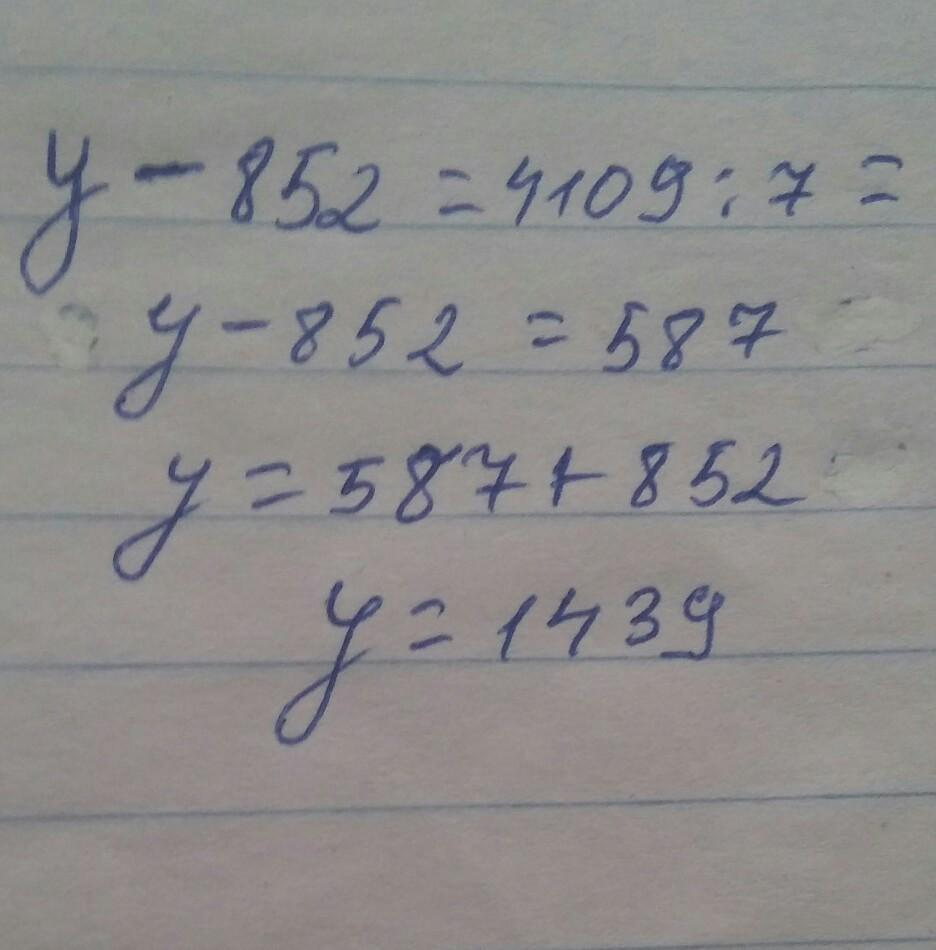 y - 852 = 4109 : 7 =
y - 852 = 587
y = 587 + 852
y = 1439